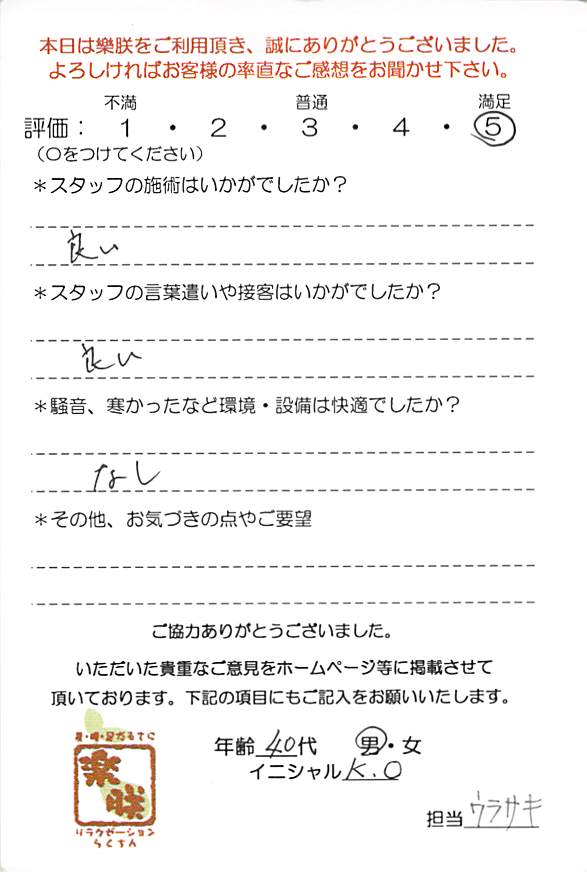 本日は樂朕をご利用頂き、誠にありがとうございました。
よろしければお客様の率直なご感想をお聞かせ下さい。
不満 普通 満足
評価： 1 ・ 2 ・ 3 ・ 4 ・ 5
（○をつけてください）
＊スタッフの施術はいかがでしたか？
良い
＊スタッフの言葉遣いや接客はいかがでしたか？
良い
＊騒音、寒かったなど環境・設備は快適でしたか？
なし
＊その他、お気づきの点やご要望
ご協力ありがとうございました。
いただいた貴重なご意見をホームページ等に掲載させて
頂いております。下記の項目にもご記入をお願いいたします。
年齢 40代 男・女
イニシャル K.O
担当 ウラサキ
樂朕
リラクゼーション
らくちん